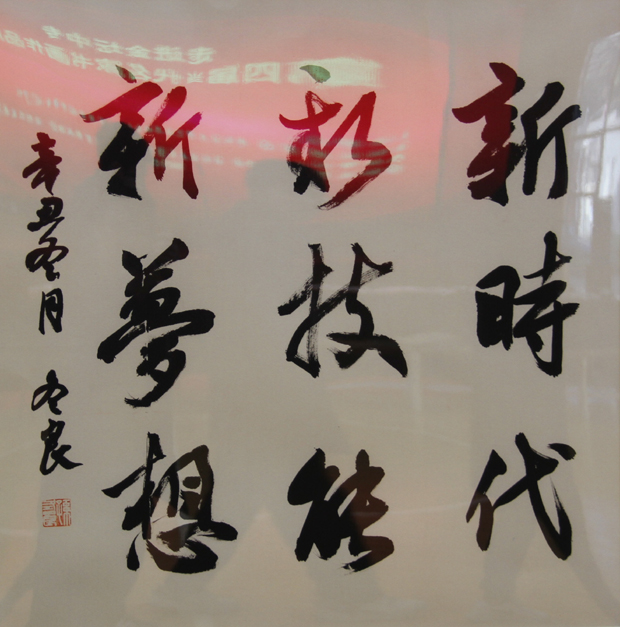 新時代
新技能
新夢想
辛丑冬月